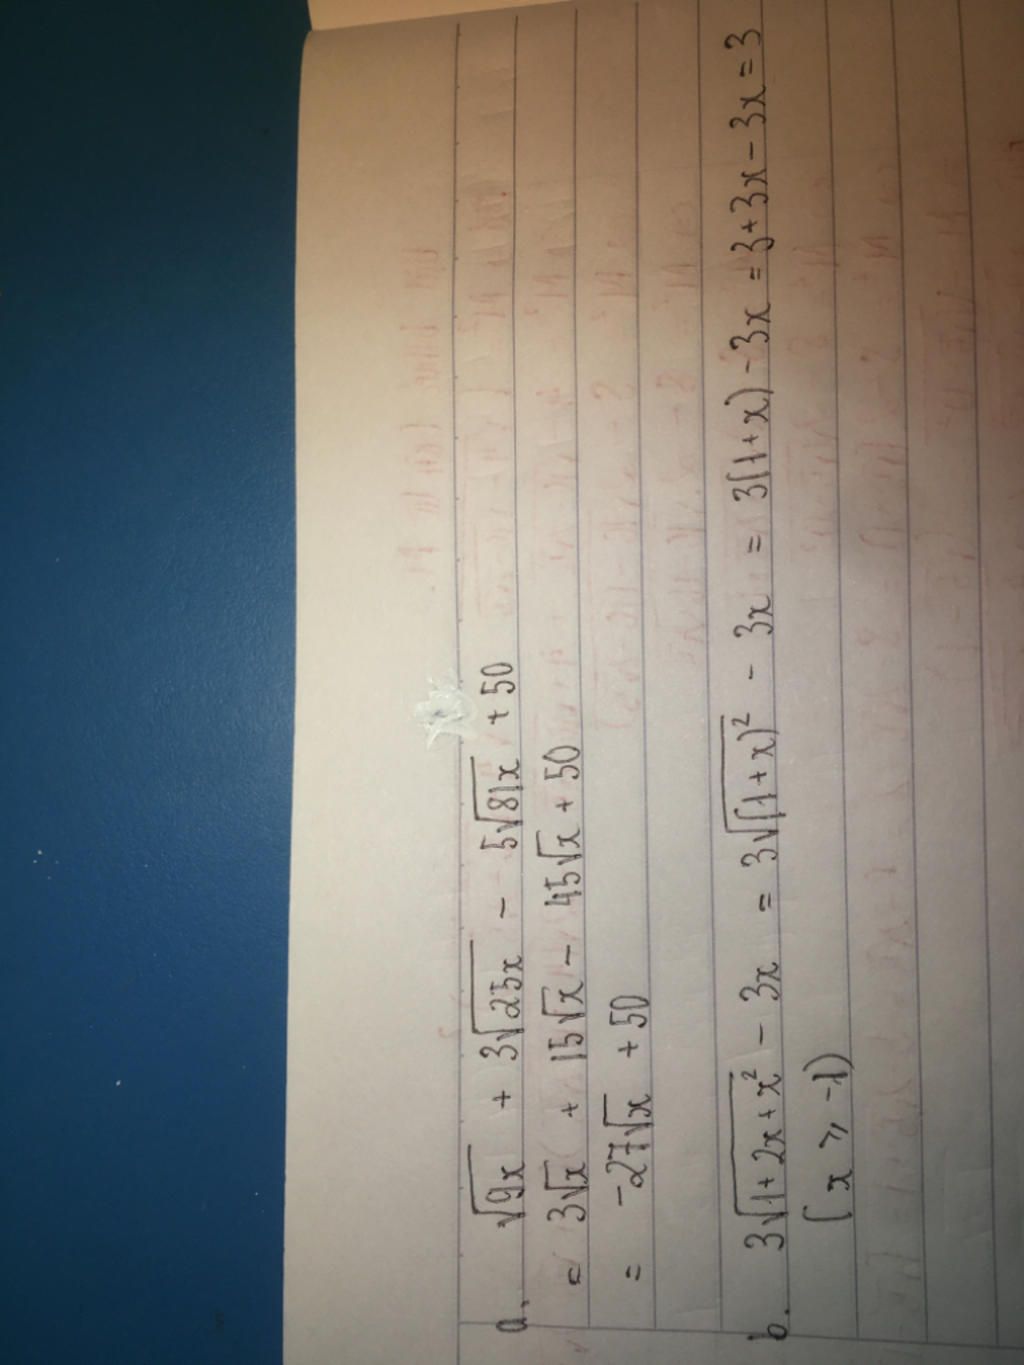 a. √9x + 3√25x - 5√81x + 50
= 3√x + 15√x - 45√x + 50
= -27√x + 50
b. 3√1+2x+x² - 3x = 3√(1+x)² - 3x = 3(1+x) - 3x = 3+3x-3x=3
(x ⩾ -1)